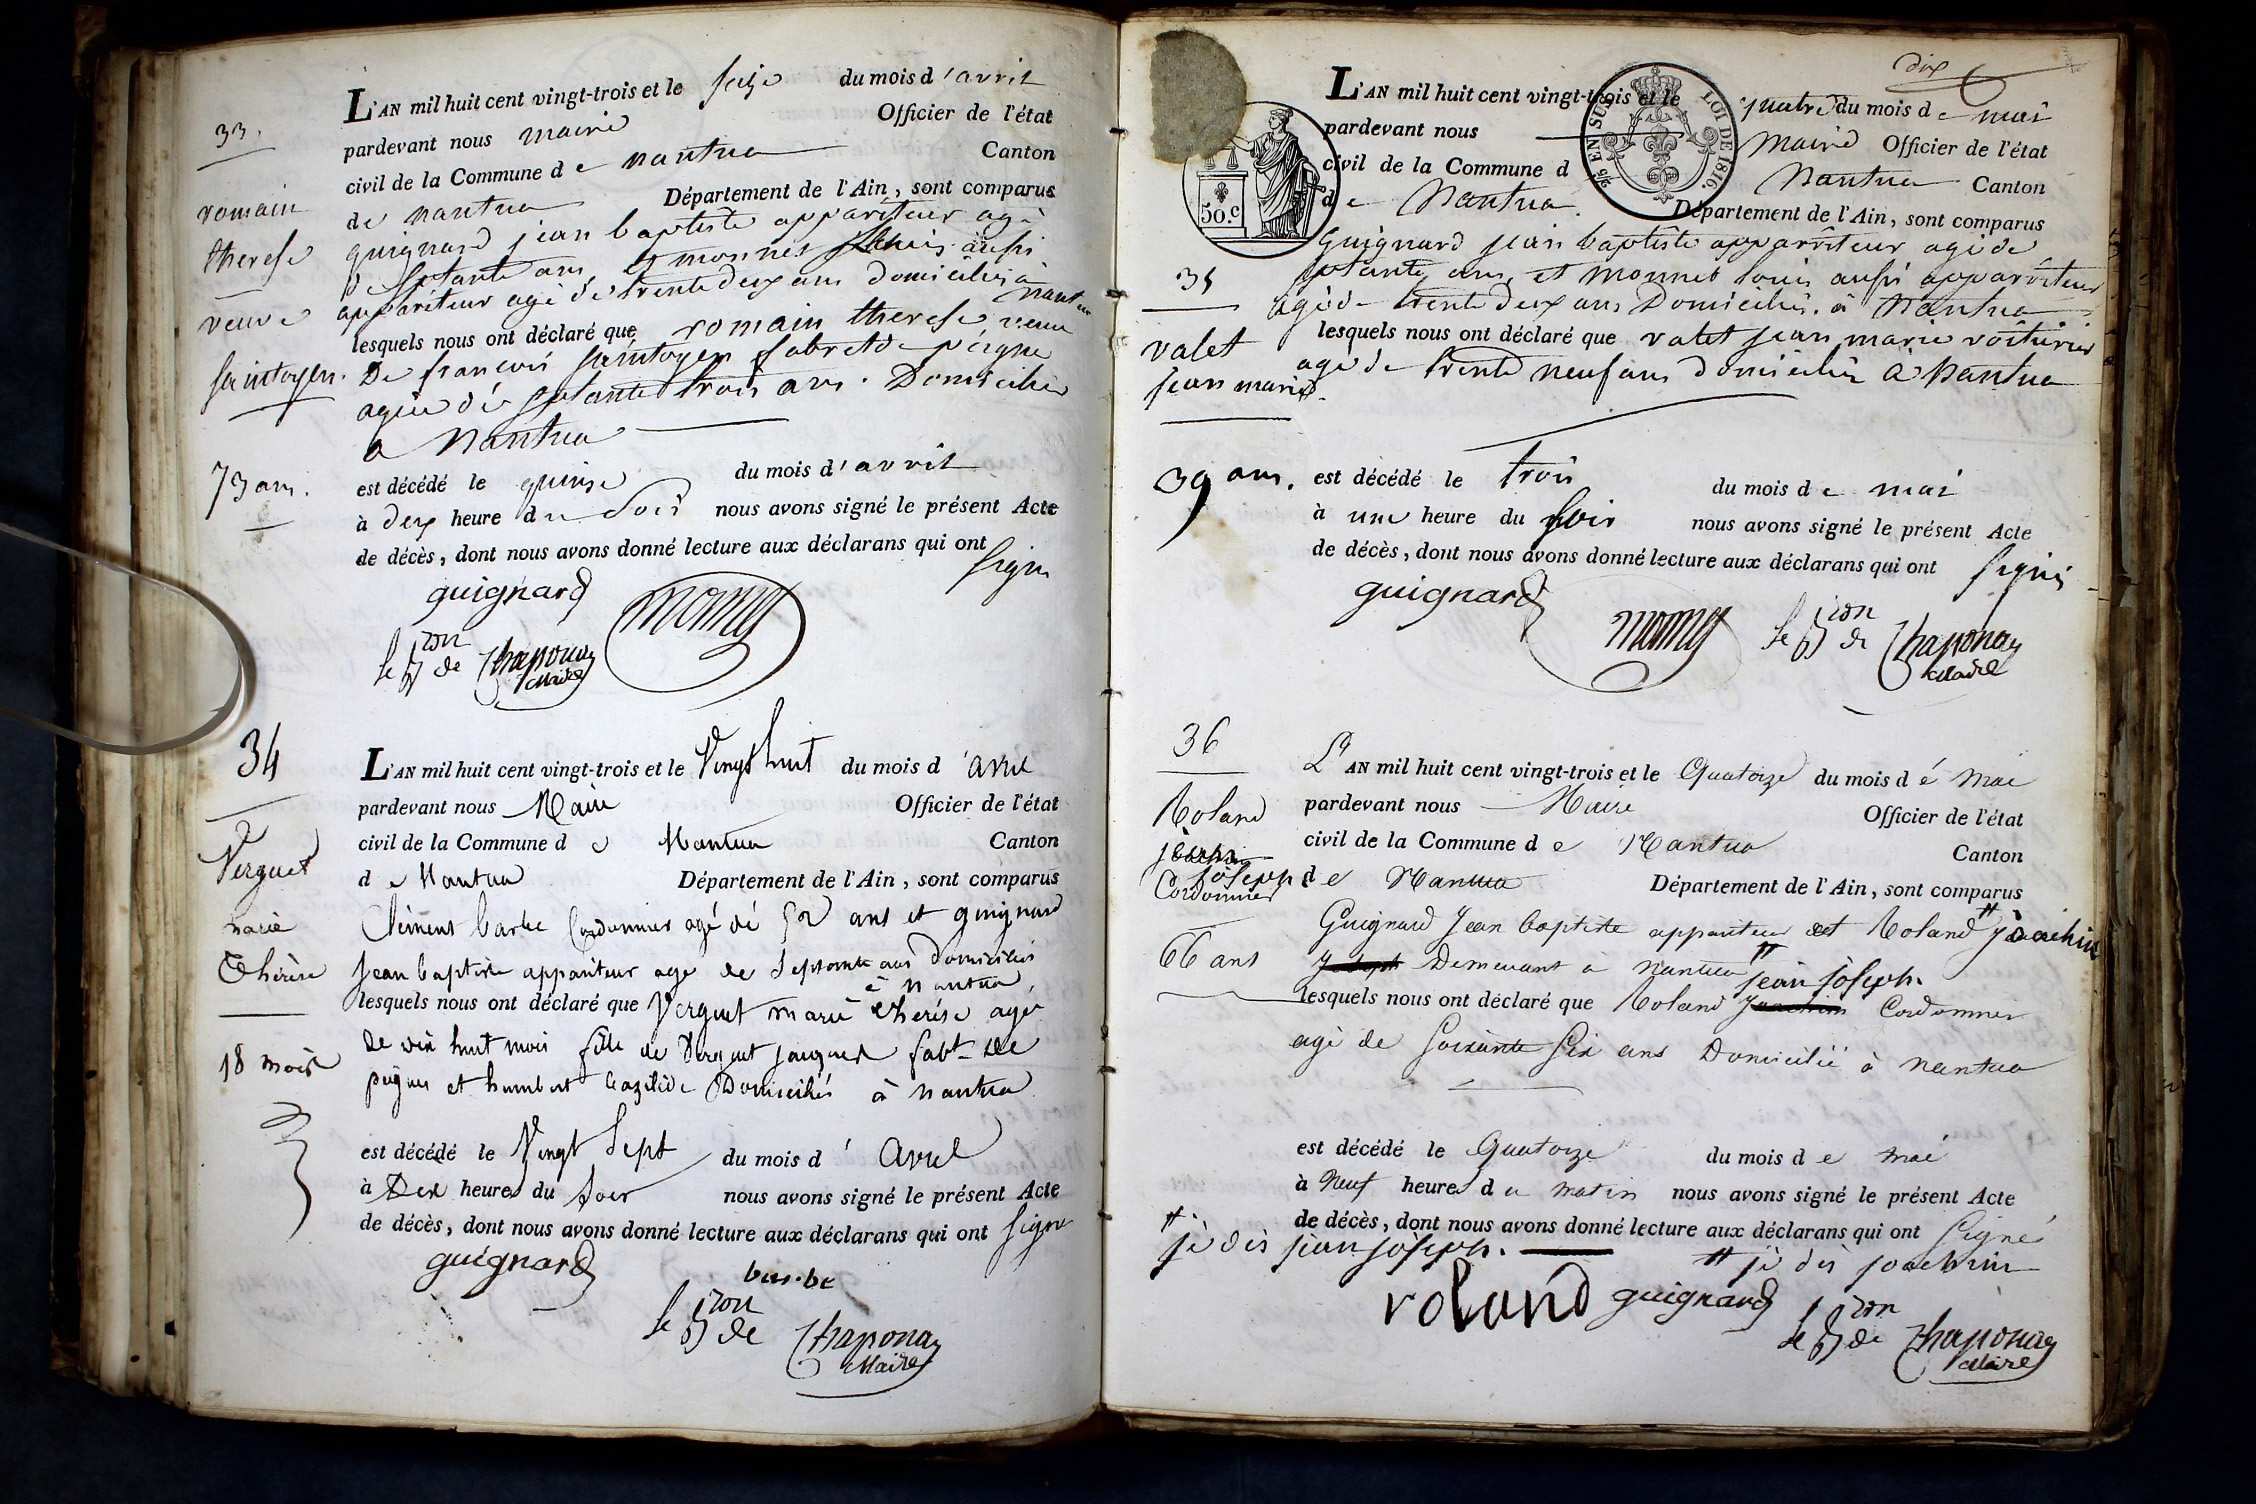 33.
romain
therese
veuve
saintoyen.
73 ans.
L'AN mil huit cent vingt-trois et le seize du mois d'avril
pardevant nous maire Officier de l'état
civil de la Commune de nantua Canton
de nantua Département de l'Ain, sont comparus
guignard jean baptiste appariteur agé
de septante ans et monnet louis aussi
appariteur agé de trente deux ans domiciliés à nantua
lesquels nous ont déclaré que romain therese veuve
De françois saintoyen fabrt de peigne
agée de septante trois ans. Domiciliée
a Nantua
est décédé le quinse du mois d'avril
à deux heure du soir nous avons signé le présent Acte
de décès, dont nous avons donné lecture aux déclarans qui ont signé
guignard monnet
le Bron de Chaponay
Maire
34
Verguet
marie
Thérèse
18 mois
L'AN mil huit cent vingt-trois et le Vingt huit du mois d'avril
pardevant nous Maire Officier de l'état
civil de la Commune de Nantua Canton
de Nantua Département de l'Ain, sont comparus
Clément barbe Cordonnier agé de ans et guignard
Jean baptiste appariteur age de septante ans domiciliés
à nantua
lesquels nous ont déclaré que Verguet marie thérèse agée
de dix huit mois fille de Verguet jacques fabt de
peignes et humbert bazilide Domiciliés à nantua
est décédé le Vingt Sept du mois d'Avril
à Dix heures du soir nous avons signé le présent Acte
de décès, dont nous avons donné lecture aux déclarans qui ont signé
guignard barbe
le Bron de Chaponay
Maire
dix
50.c
2/5 EN SUS LOI DE 1816.
35
valet
jean marie.
39 ans.
L'AN mil huit cent vingt-trois et le quatre du mois de mai
pardevant nous Maire Officier de l'état
civil de la Commune d Nantua Canton
de Nantua. Département de l'Ain, sont comparus
Guignard jean baptiste apparriteur agé de
septante ans, et Monnet louis aussi apparriteur
agé de trente deux ans Domiciliés à Nantua
lesquels nous ont déclaré que valet jean marie voiturier
agé de trente neuf ans domicilié à Nantua
est décédé le trois du mois de mai
à une heure du soir nous avons signé le présent Acte
de décès, dont nous avons donné lecture aux déclarans qui ont signé
guignard monnet le Bron de Chaponay
Maire
36
Roland
joachim
joseph
Cordonnier
66 ans
L'AN mil huit cent vingt-trois et le Quatorze du mois de Mai
pardevant nous Maire Officier de l'état
civil de la Commune de Nantua Canton
de Nantua Département de l'Ain, sont comparus
Guignard Jean baptiste appariteur et Roland # joachim
Joseph Demeurant à nantua # jean joseph.
lesquels nous ont déclaré que Roland Joachim Cordonnier
agé de Soixante Six ans Domicilié à nantua
est décédé le Quatorze du mois de mai
à Neuf heures du matin nous avons signé le présent Acte
de décès, dont nous avons donné lecture aux déclarans qui ont Signé
#. je dis jean joseph. # je dis joachim
roland guignard le Bron de Chaponay
Maire